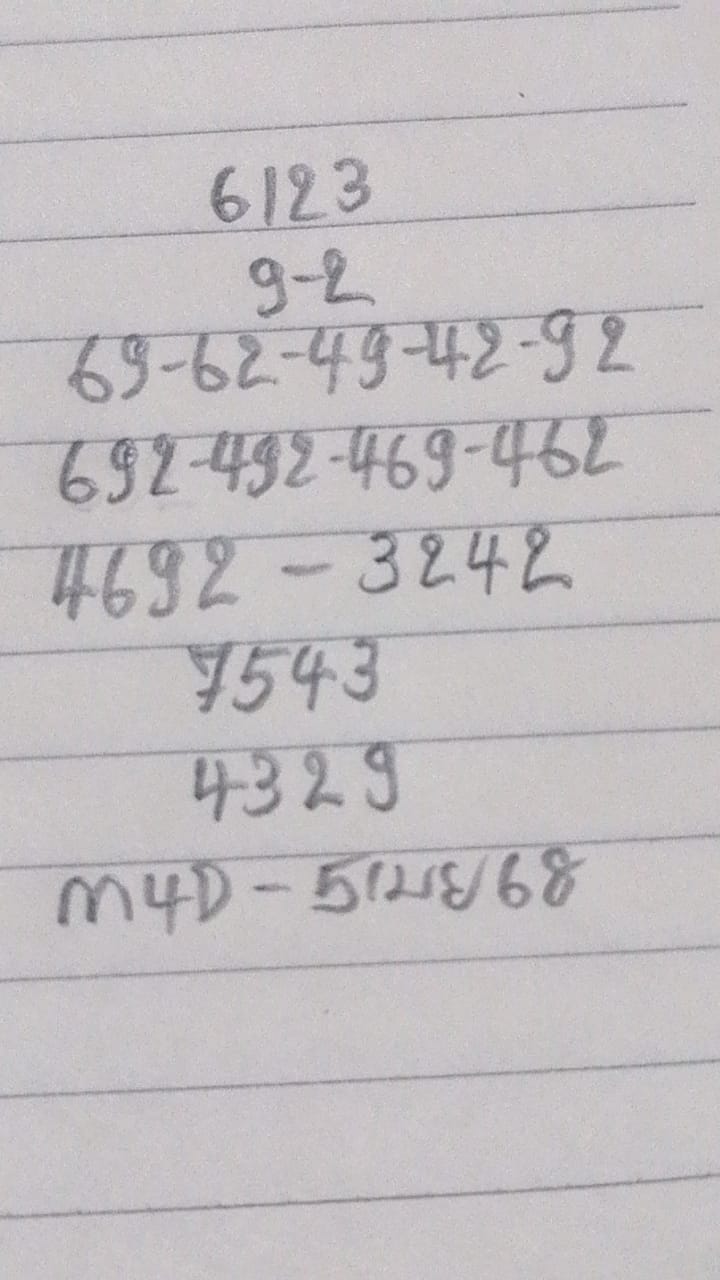 6123
9-2
69-62-49-42-92
692-492-469-462
4692 - 3242
7543
4329
M4D - 5เมย68